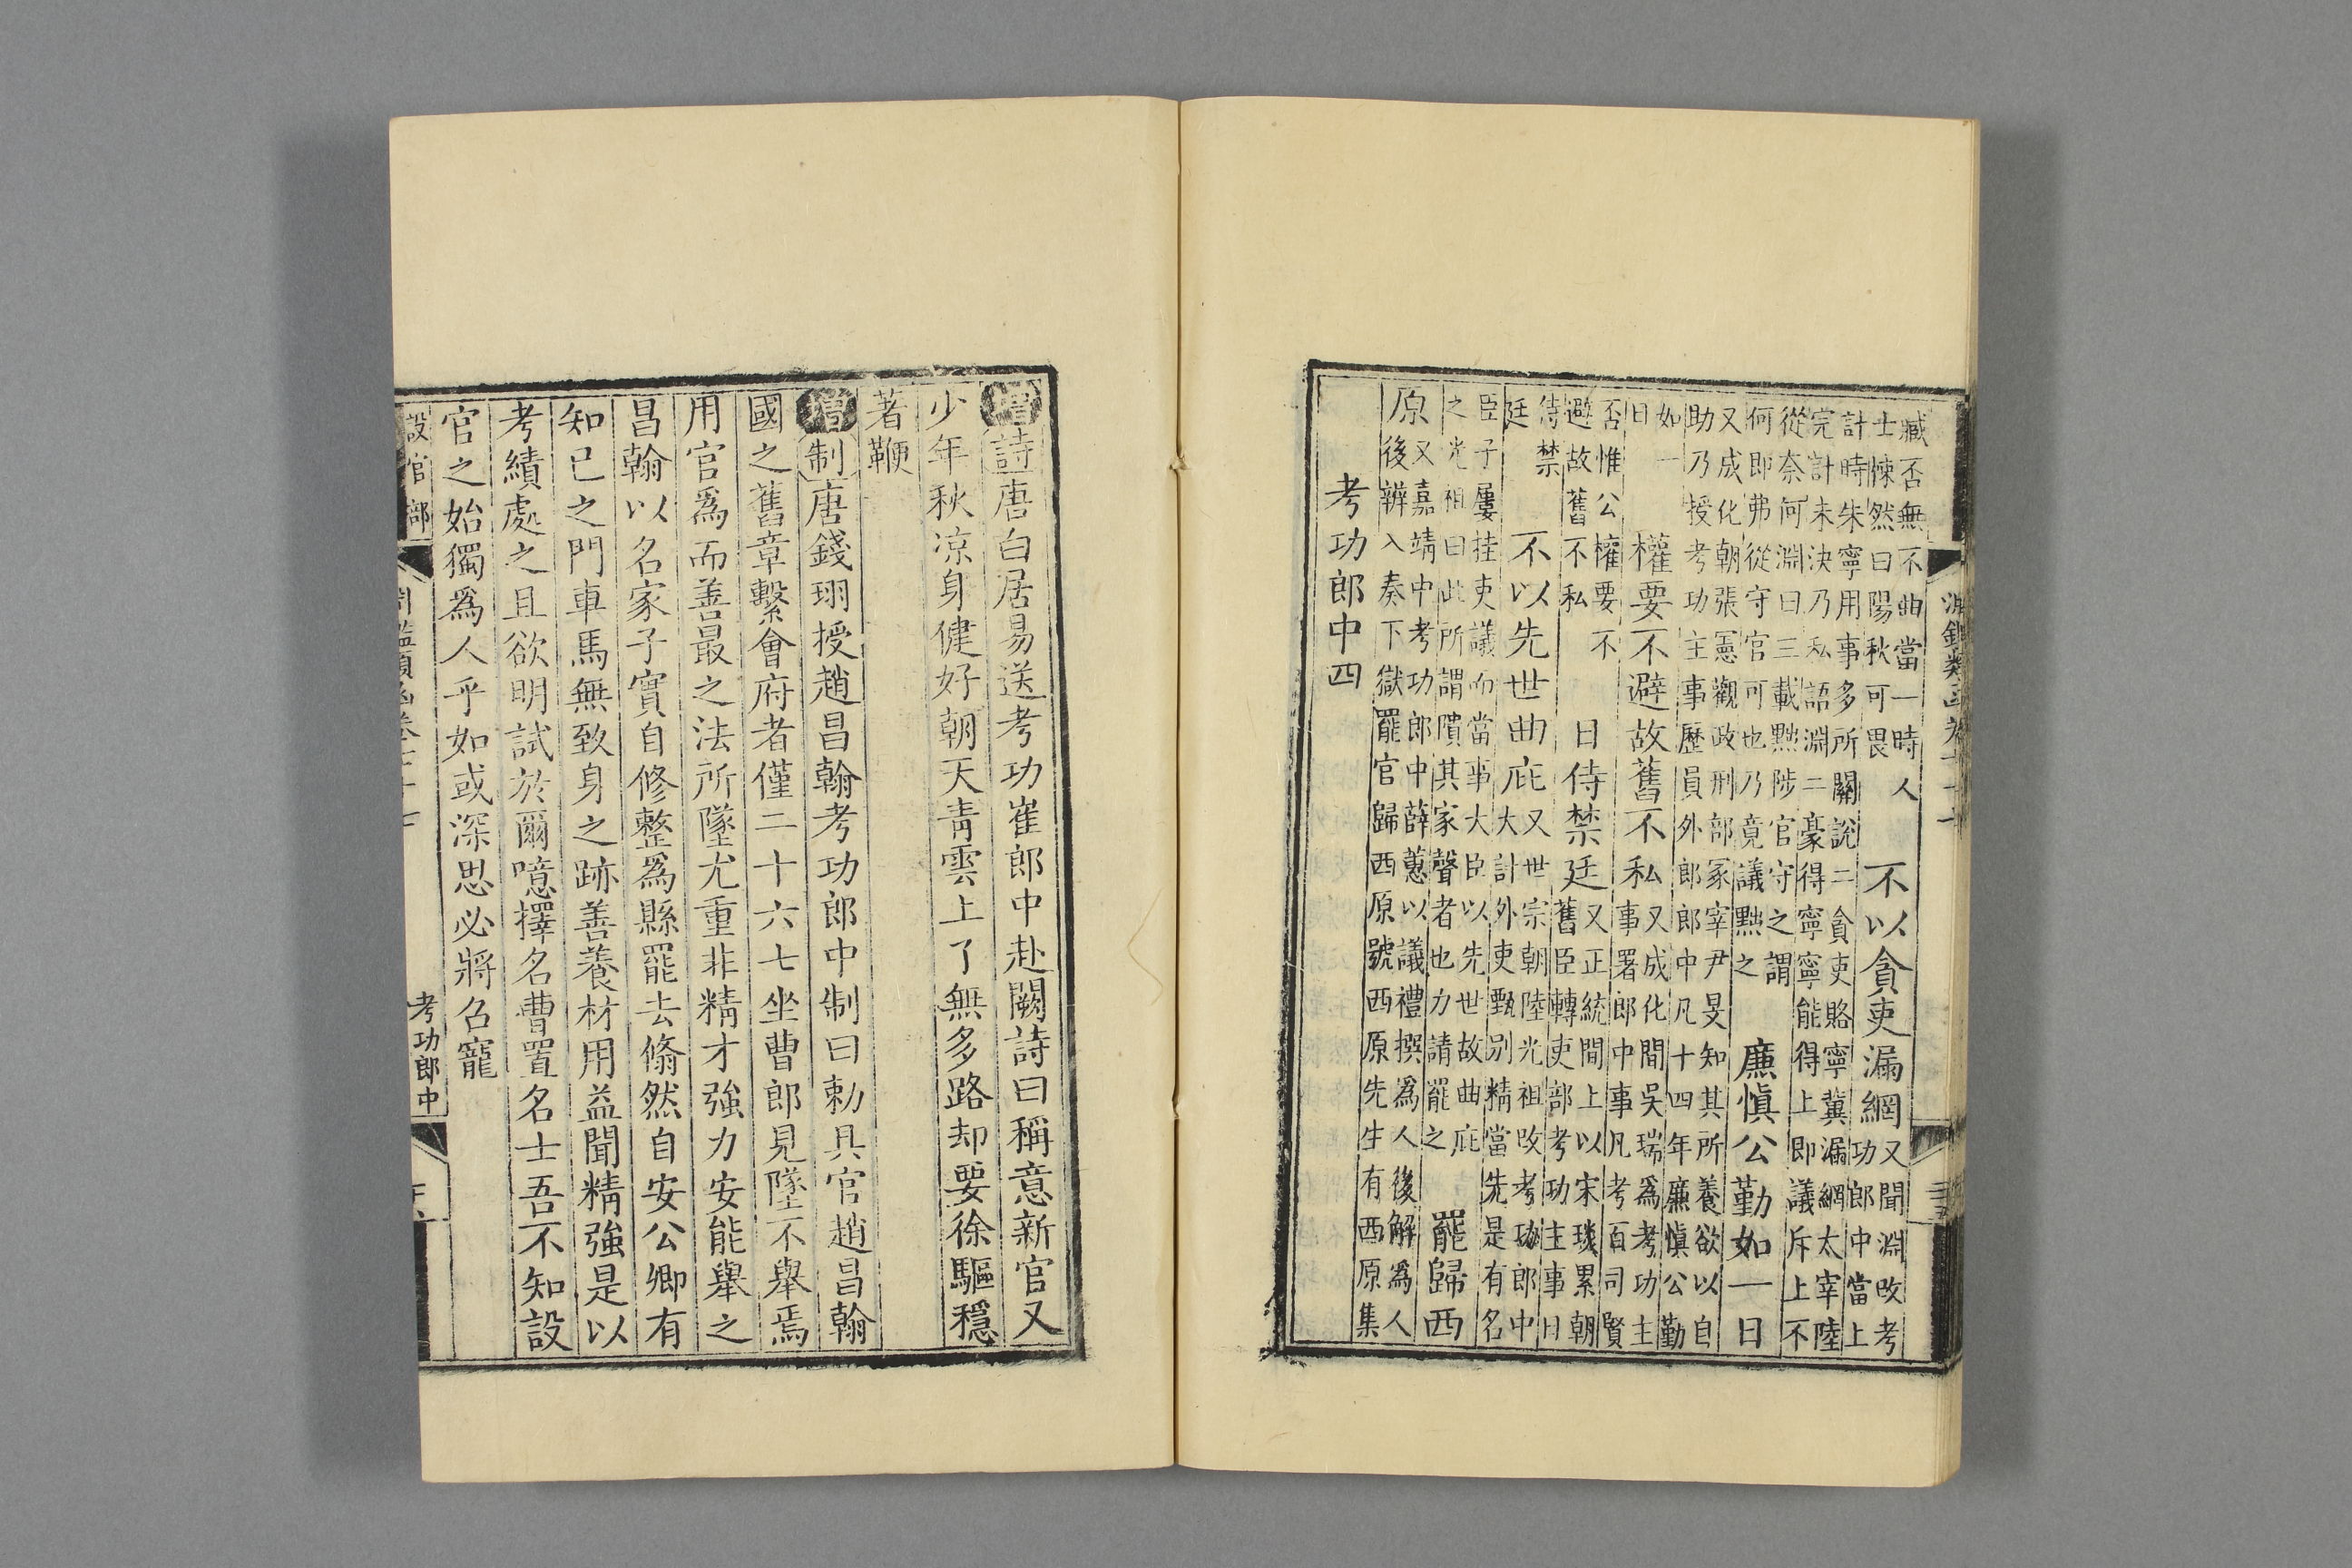 淵鑑類函卷七十七
臧否無不曲當一時人
士悚然曰陽秋可畏
不以貪吏漏網
又聞淵改考
功郎中當上
計時朱寧用事多所關說二貪吏賂寧冀漏網太宰陸
完計未決乃私語淵二豪得寧寧能得上即議斥上不
從奈何淵曰三載黜陟官守之謂
何即弗從守官可也乃竟議黜之
廉慎公勤如一日
又成化朝張憲觀政刑部冢宰尹旻知其所養欲以自
助乃授考功主事歷員外郎郎中凡十四年廉慎公勤
如一
日
權要不避故舊不私
又成化間吳瑞爲考功主
事署郎中事凡考百司賢
否惟公權要不
避故舊不私
日侍禁廷
又正統間上以宋琰累朝
舊臣轉吏部考功主事日
侍禁
廷
不以先世曲庇
又世宗朝陸光祖改考功郎中
大計外吏甄別精當先是有名
臣子屢挂吏議而當事大臣以先世故曲庇
之光祖曰此所謂隤其家聲者也力請罷之
罷歸西
原
又嘉靖中考功郎中薛蕙以議禮撰爲人後解爲人
後辨入奏下獄罷官歸西原號西原先生有西原集
考功郎中四
增詩唐白居易送考功崔郎中赴闕詩曰稱意新官又
少年秋凉身健好朝天青雲上了無多路却要徐驅穩
著鞭
增制唐錢珝授趙昌翰考功郎中制曰勅具官趙昌翰
國之舊章繫會府者僅二十六七坐曹郎見墜不舉焉
用官爲而善最之法所墜尤重非精才強力安能舉之
昌翰以名家子實自修整爲縣罷去翛然自安公卿有
知已之門車馬無致身之跡善養材用益聞精強是以
考績處之且欲明試於爾噫擇名曹置名士吾不知設
官之始獨爲人乎如或深思必將召寵
設官部
淵鑑類函卷七十七
考功郎中